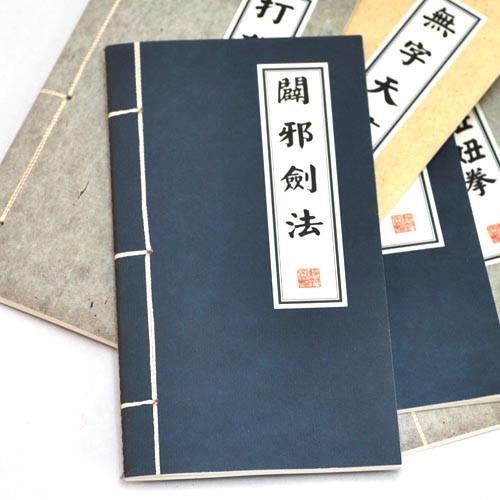 闢邪劍法
無字天
打
妞拳